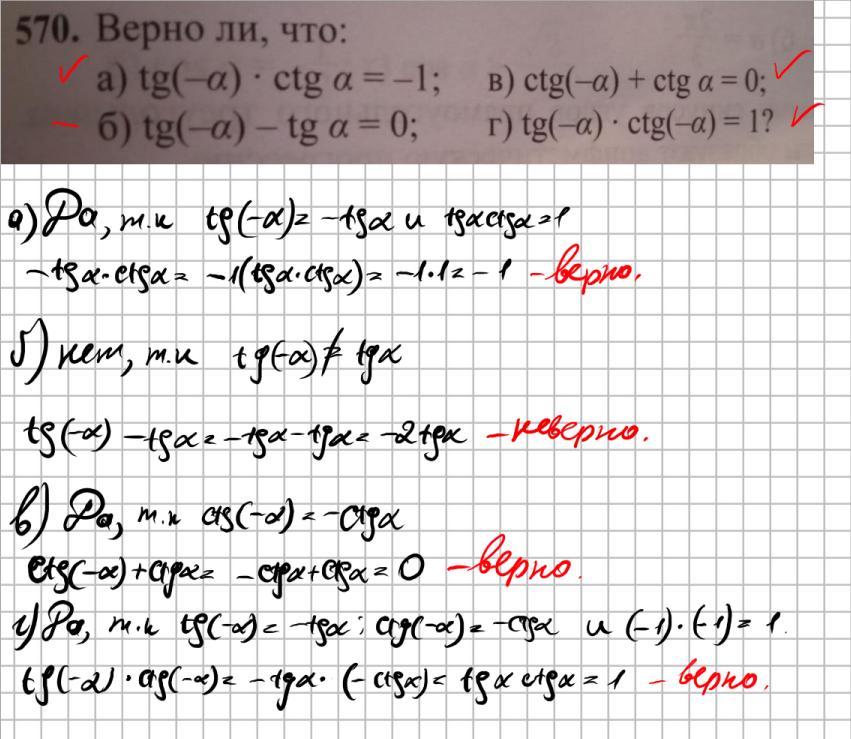 570. Верно ли, что:
а) tg(–α) · ctg α = –1; в) ctg(–α) + ctg α = 0;
б) tg(–α) – tg α = 0; г) tg(–α) · ctg(–α) = 1?
а) Да, т.к tg(-α) = -tgα и tgα ctgα = 1
-tgα·ctgα = -1(tgα·ctgα) = -1·1 = -1 - верно.
б) нет, т.к tg(-α) ≠ tgα
tg(-α) - tgα = -tgα - tgα = -2tgα - неверно.
в) Да, т.к ctg(-α) = -ctgα
ctg(-α) + ctgα = -ctgα + ctgα = 0 - верно.
г) Да, т.к tg(-α) = -tgα; ctg(-α) = -ctgα и (-1)·(-1) = 1.
tg(-α)·ctg(-α) = -tgα·(-ctgα) = tgα ctgα = 1 - верно.